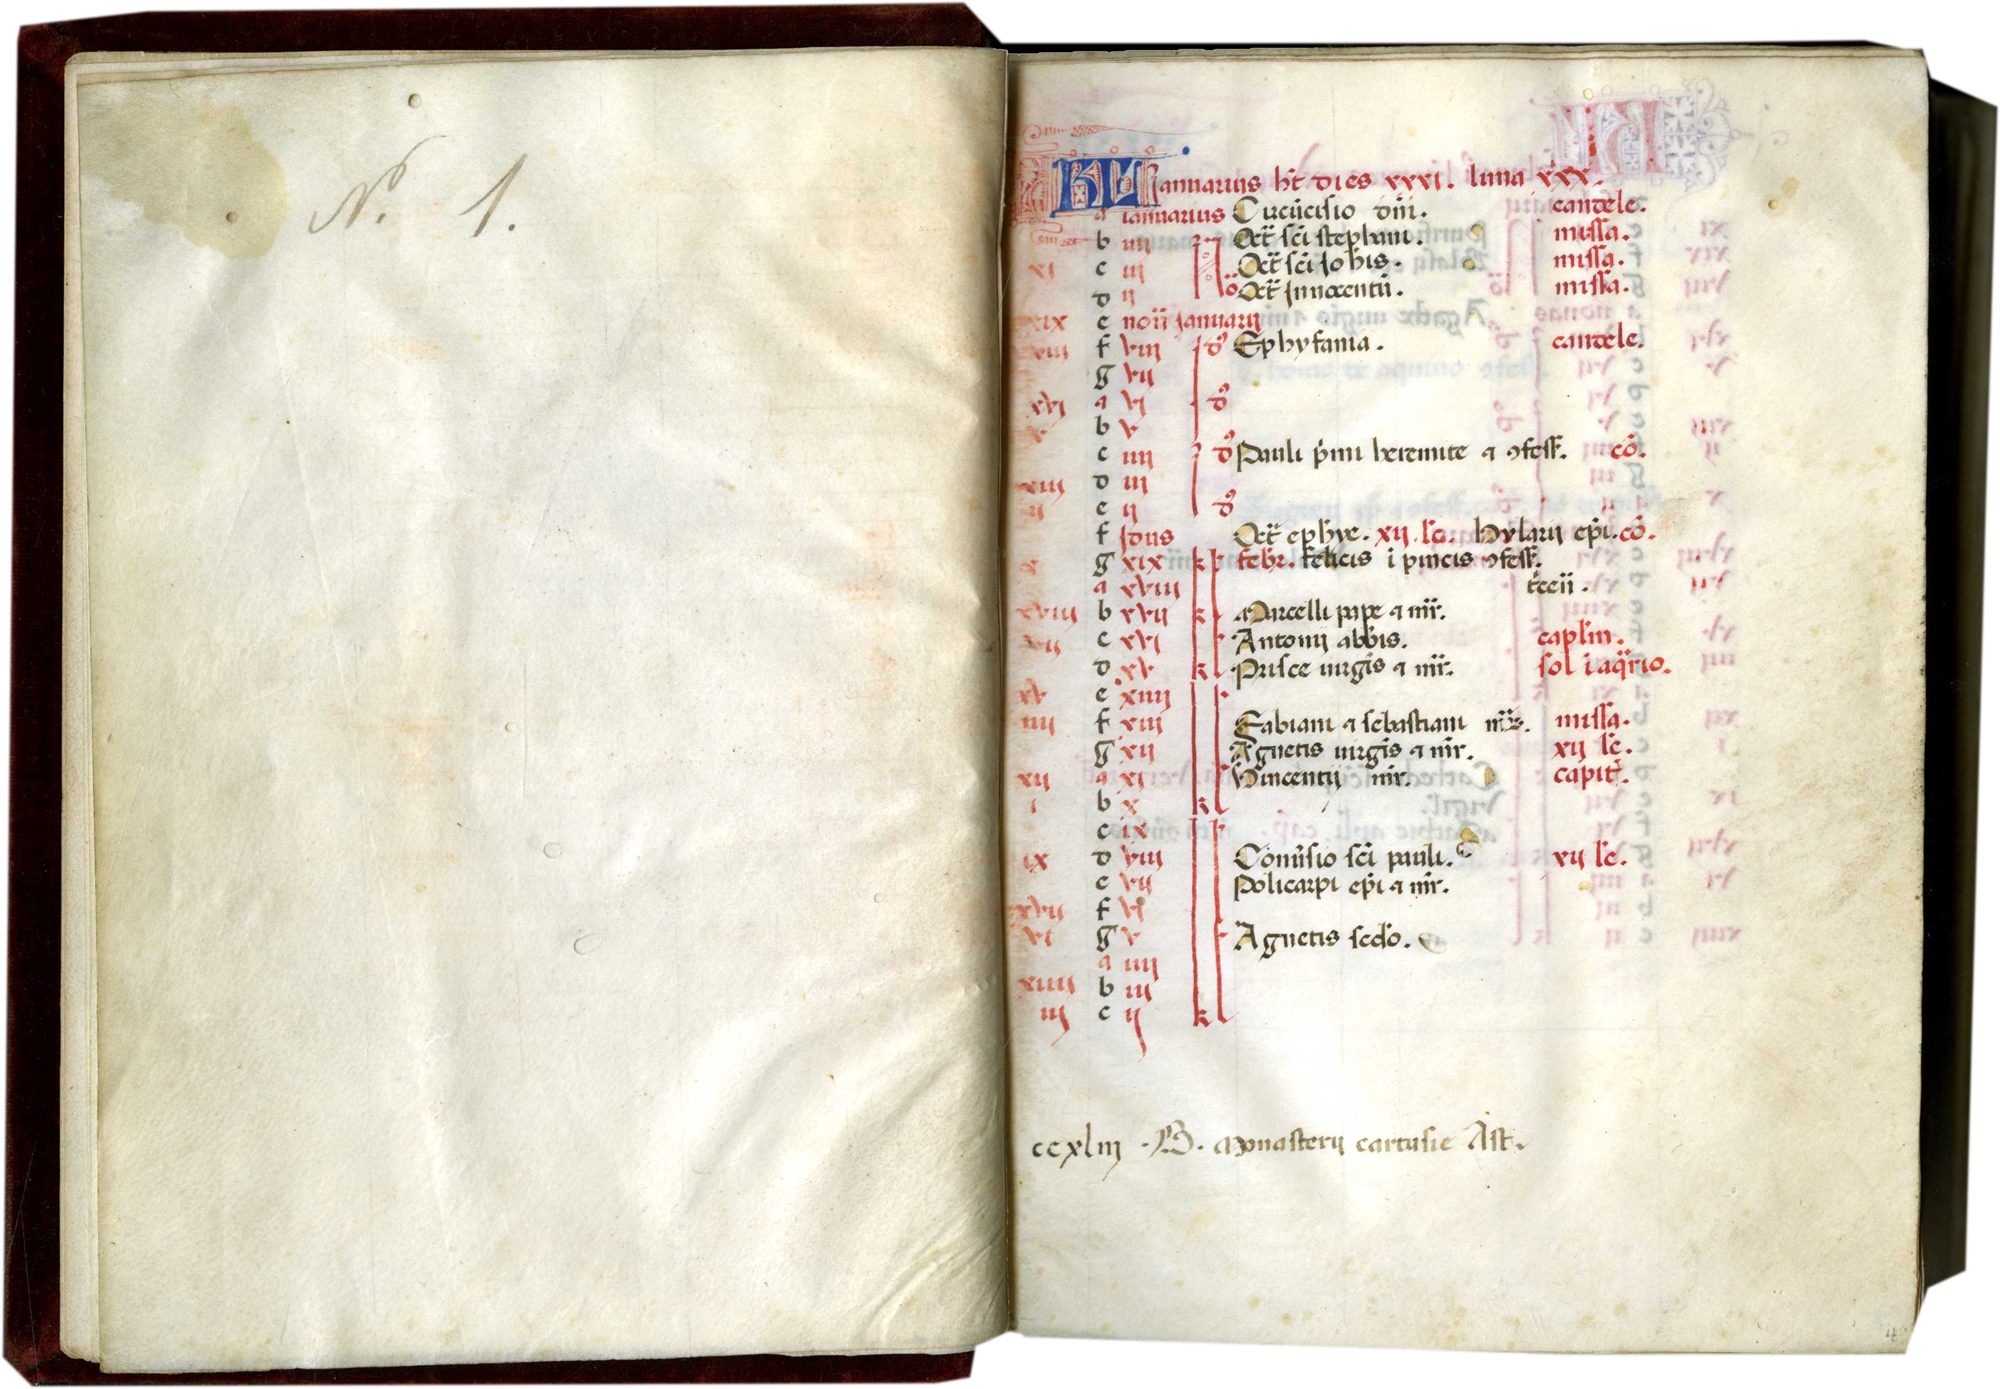 N. 1.
KL Januarius ht dies xxxi. luna xxx.
a ianuarius Circūcisio dni. candele.
b iiij Oct sci stephani. missa.
xi c iij Oct sci Johis. missa.
d ij Oct Innocentū. missa.
xix e non Januarij
viij f viij Ephyfania. candele.
g vij
xvi a vi
v b v
c iiij Pauli pmi heremite ⁊ ꝯfess. cō.
xiij d iij
ij e ij
f Idus Oct ephye. xij. lc. Hylarij epi. cō.
x g xix kl febr. felicis i pincis ꝯfess.
a xviij
xviij b xvij Marcelli pape ⁊ mr.
vij c xvi Antonij abbis. caplm.
d xv Prisce uirgis ⁊ mr. sol i aqrio.
xv e xiiij
iiij f xiij Fabiani ⁊ sebastiani missa.
g xij Agnetis uirgis ⁊ mr. xij lc.
xij a xi Vincentij mr. capit.
i b x
c ix
ix d viij Conūsio sci pauli. xij lc.
e vij Policarpi epi ⁊ mr.
xvij f vi
vi g v Agnetis scdo.
a iiij
xiiij b iij
iij c ij
ccxliij . B. Monasterij cartusie Ast.
4